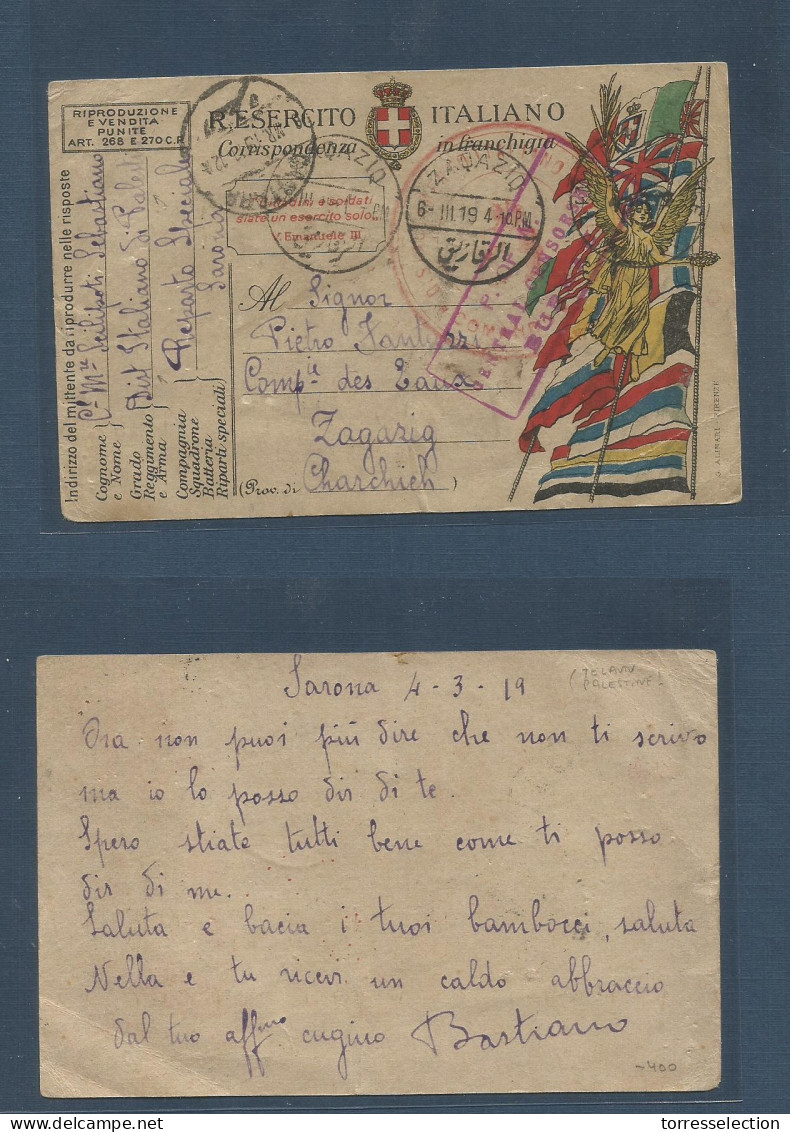 RIPRODUZIONE
E VENDITA
PUNITE
ART. 268 E 270 C.P.
R. ESERCITO ITALIANO
Corrispondenza in franchigia
siate un esercito solo.
V. Emanuele III
ZAQAZIQ
6- III.19 4- PM
الزقازيق
CENTRAL CENSORSHIP
Indirizzo del mittente da riprodurre nelle risposte
Cognome e Nome
Sebastiano
Grado
Reggimento e Arma
Dist Italiano di Palest
Compagnia
Squadrone
Batteria
Riparti speciali
Reparto Speciale
Sarona
Al Signor
Pietro Fantuzzi
Comp.ie des Eaux
Zagazig
(Prov. di Charchieh)
G. ALINARI - FIRENZE
Sarona 4-3-19
(TELAVIV PALESTINE!
Ora non puoi più dire che non ti scrivo
ma io lo posso dir di te.
Spero stiate tutti bene come ti posso
dir di me.
Saluta e bacia i tuoi bambocci, saluta
Nella e tu ricevi un caldo abbraccio
dal tuo affmo cugino Bastiano
~400
torresselection